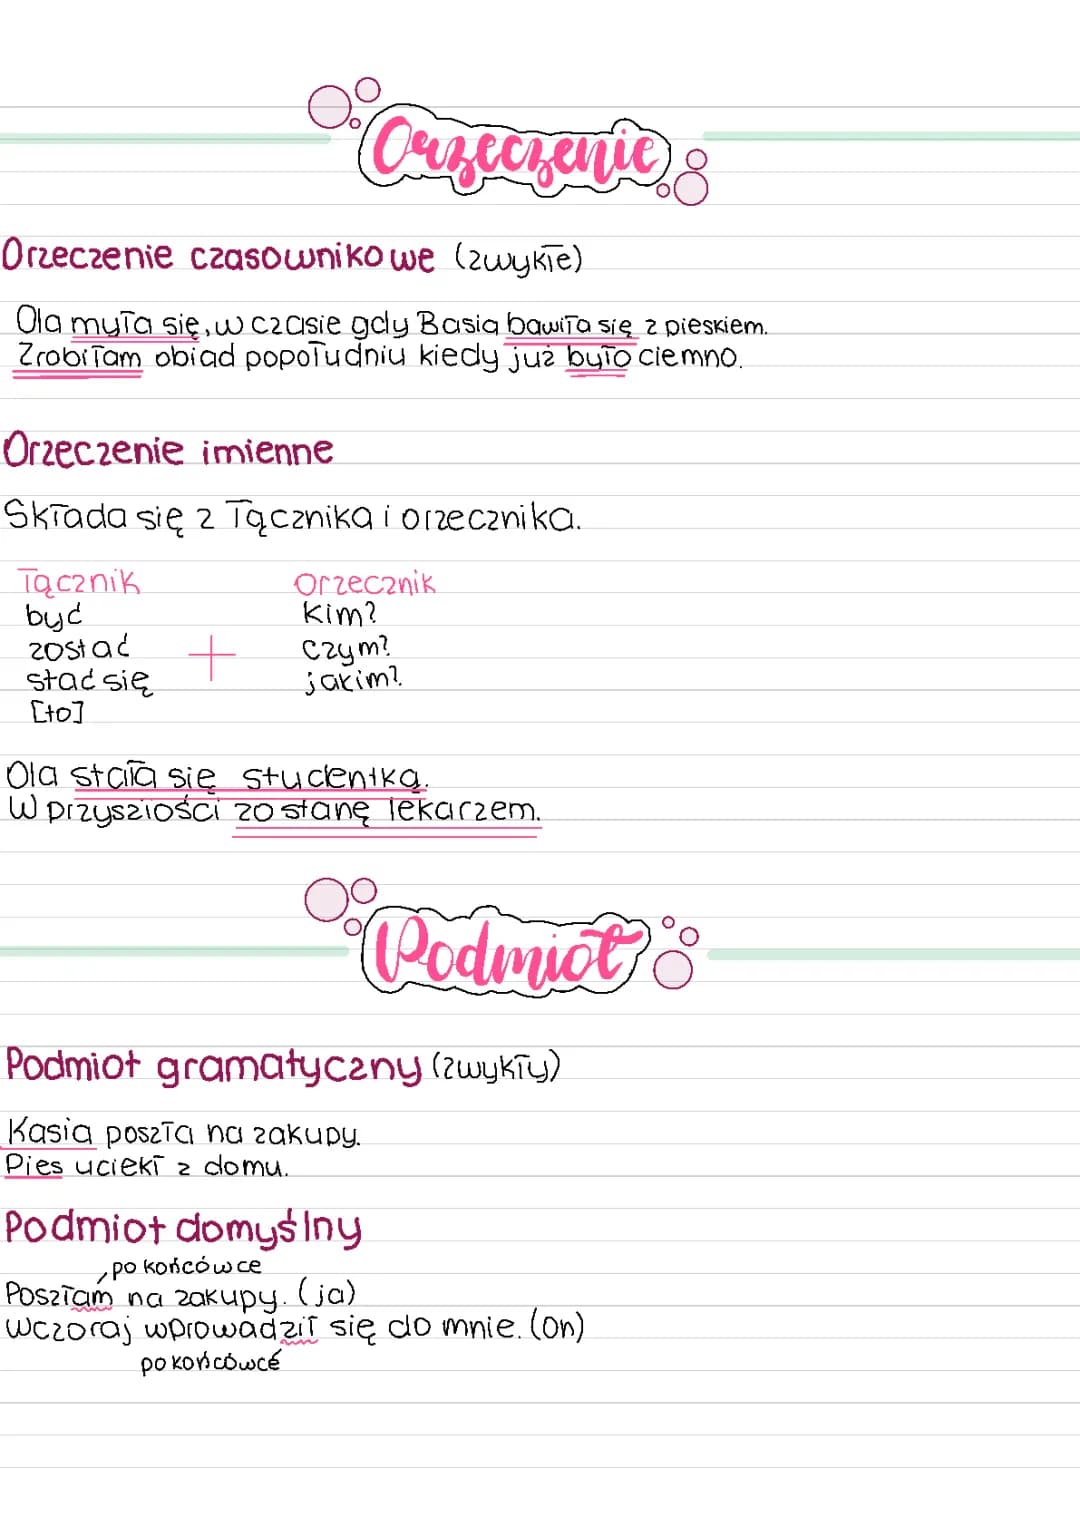 Orzeczenie
Orzeczenie czasownikowe (zwykłe)
Ola myła się, w czasie gdy Basia bawiła się z pieskiem.
Zrobiłam obiad popołudniu kiedy już było ciemno.
Orzeczenie imienne
Składa się z łącznika i orzecznika.
łącznik orzecznik
być kim?
zostać + czym?
stać się jakim?
[to]
Ola stała się studentką.
W przyszłości zostanę lekarzem.
Podmiot
Podmiot gramatyczny (zwykły)
Kasia poszła na zakupy.
Pies uciekł z domu.
Podmiot domyślny
po końcówce
Poszłam na zakupy. (ja)
Wczoraj wprowadził się do mnie. (on)
po końcówce